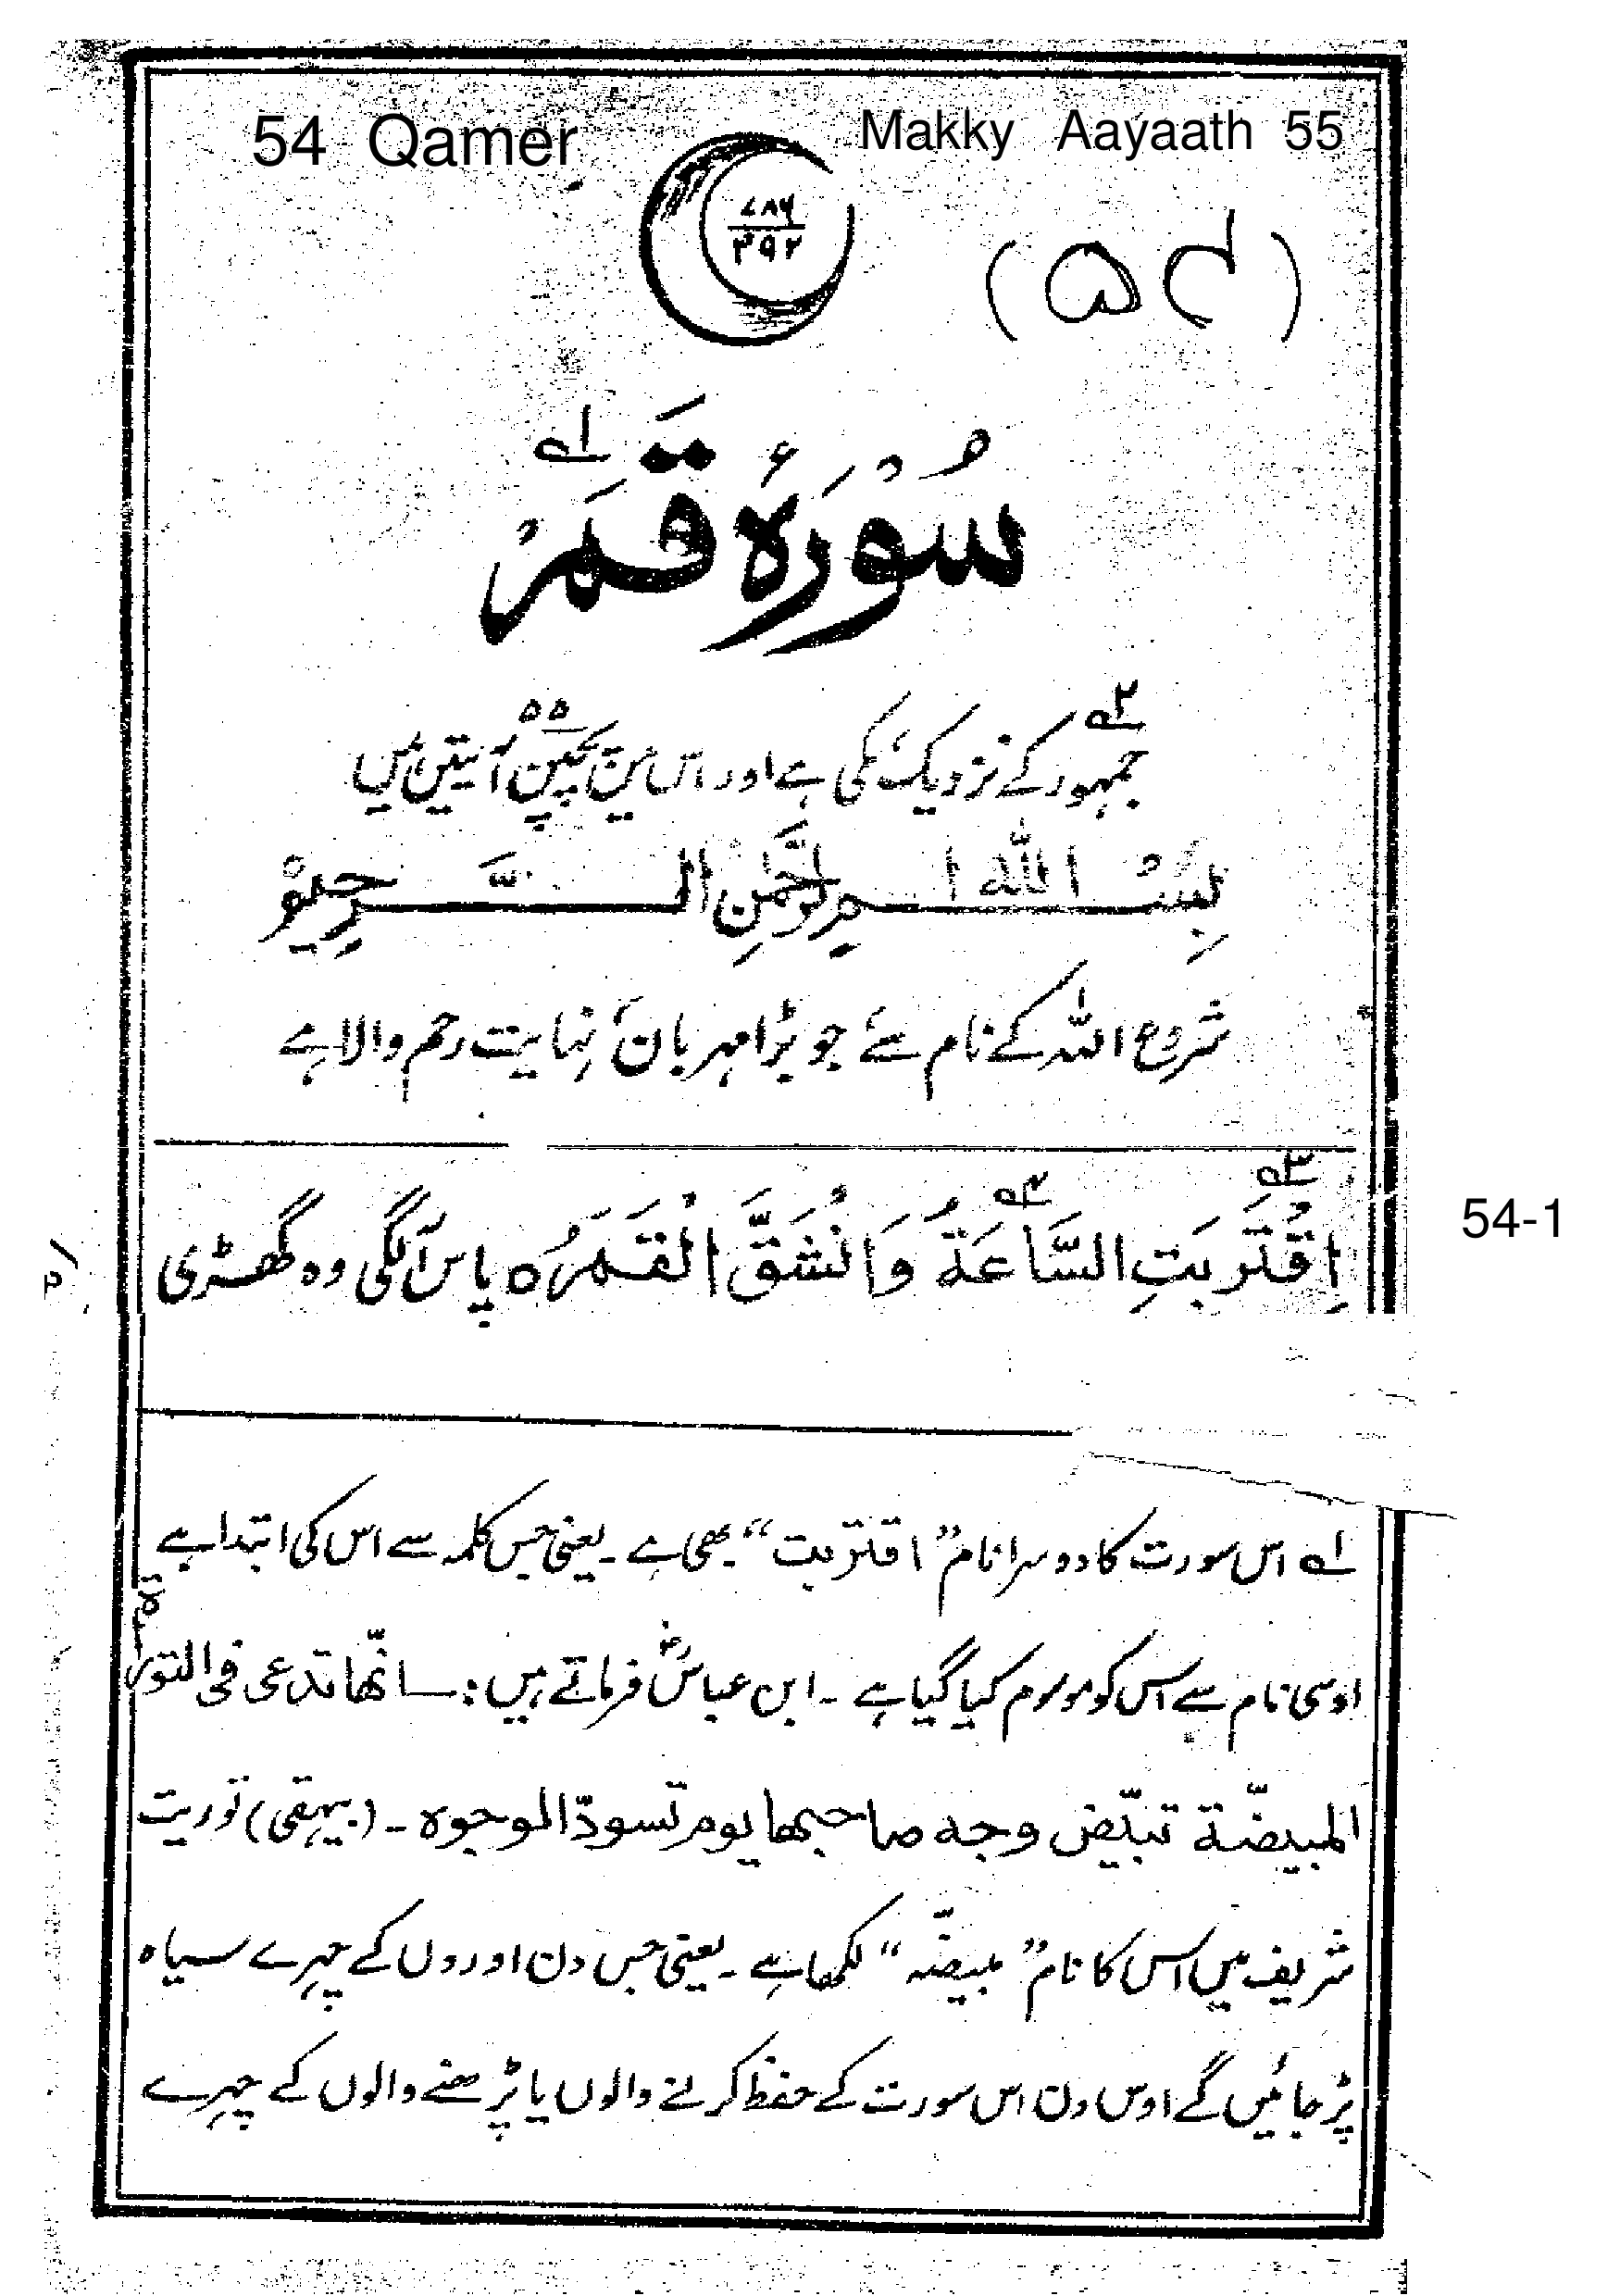 54 Qamer
Makky Aayaath 55
۷۸۶
۳۹۲
(۵۴)
سُوْرَۂ قَمَرْ ۱؎
۲؎ ۵۵
جمہور کے نزدیک مکی ہے اور اس میں پچپن آیتیں ہیں
بِسْمِ اللہ الرَّحْمٰنِ الرَّحِیْمِ
شروع اللہ کے نام سے جو بڑا مہربان نہایت رحم والا ہے
۳؎ ۴؎
اِقْتَرَبَتِ السَّاعَةُ وَانْشَقَّ الْقَمَرُ ہ پاس آلگی وہ گھڑی
54-1
۱؎ اس سورت کا دوسرا نام ”اقتربت“ بھی ہے ۔ یعنی جس کلمہ سے اس کی ابتدا ہے
اوسی نام سے اس کو موسوم کیا گیا ہے ۔ ابن عباسؓ فرماتے ہیں :۔ انّھا تدعی فی التورٰىة
المبیضّة تبیّض وجه صاحبھا یوم تسودّ الوجوہ ۔ (بیہقی) توریت
شریف میں اس کا نام ”مبیضّہ“ لکھا ہے ۔ یعنی جس دن اوروں کے چہرے سیاہ
پڑ جائیں گے اوس دن اس سورت کے حفظ کرنے والوں یا پڑھنے والوں کے چہرے